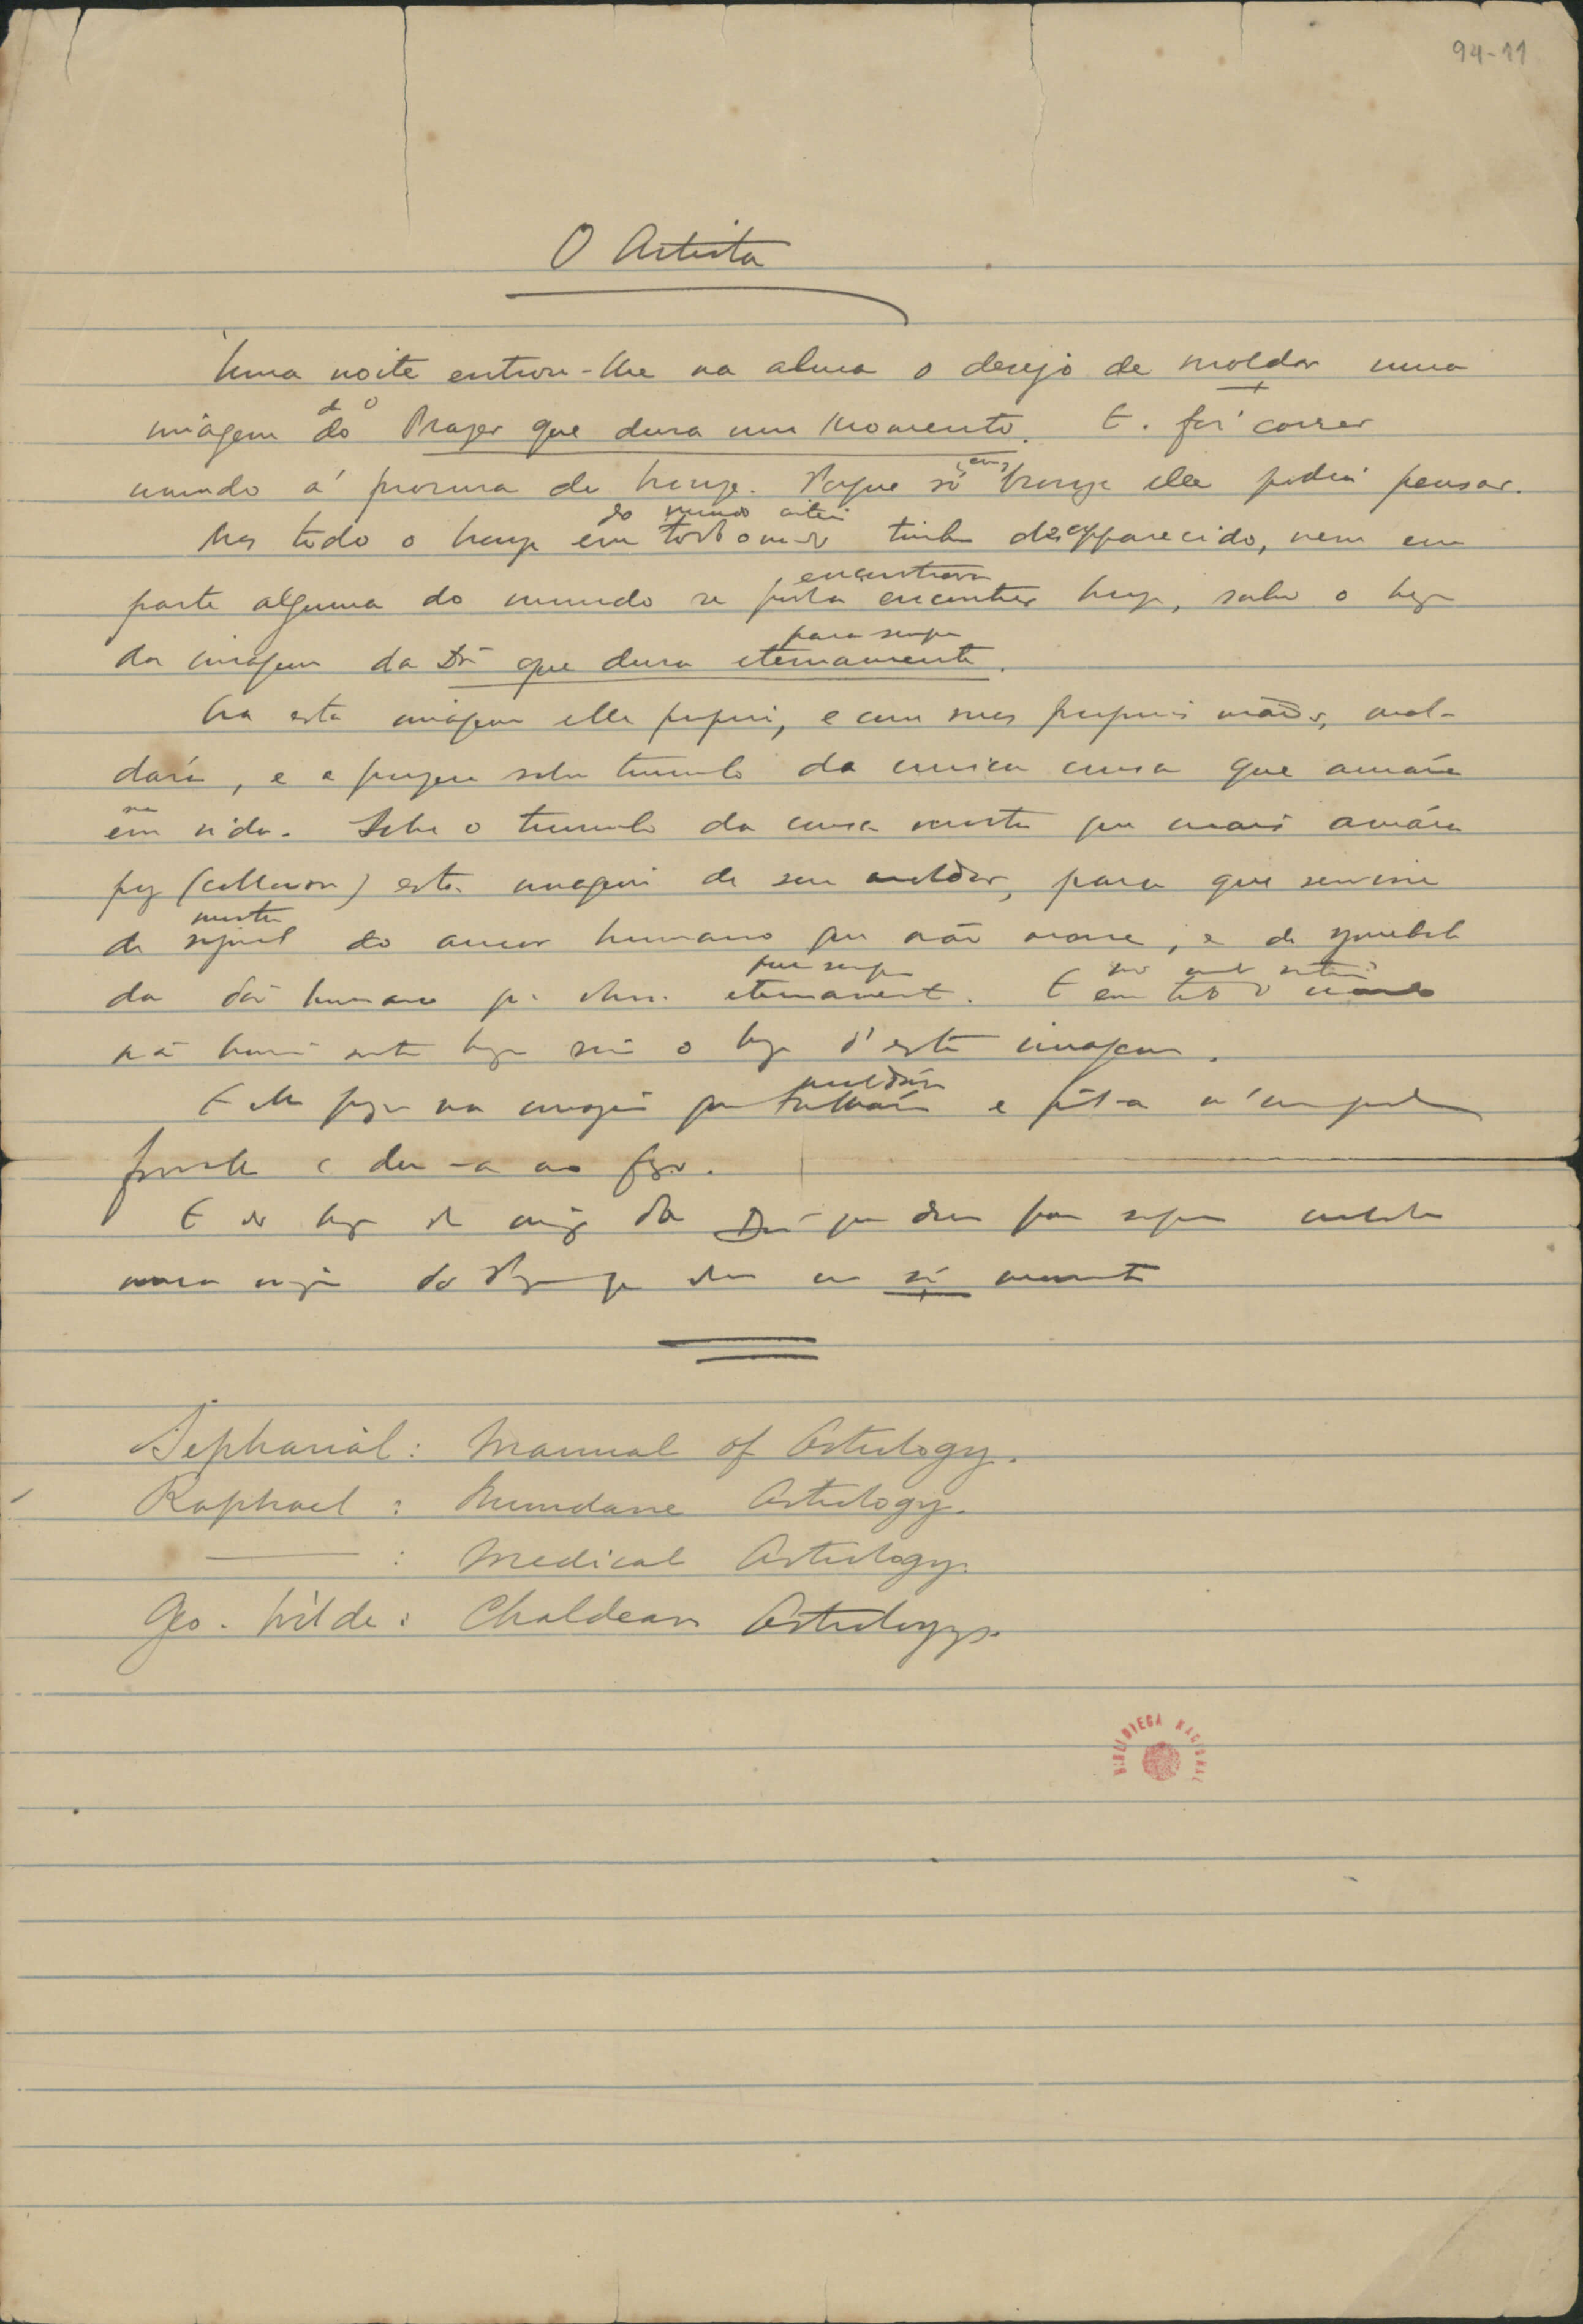 94-11
O Artista
Uma noite entrou-lhe na alma o desejo de moldar uma
de o
imagem do Prazer que dura um Momento. E foi correr
mundo á procura de bronze. Porque só (em) bronze elle podia pensar.
do mundo inteiro
Mas todo o bronze em todo o mundo tinha desapparecido, nem em
encontrava
parte alguma do mundo se podia encontrar bronze, salvo o bronze
para sempre
da imagem da Dôr que dura eternamente.
Ora esta imagem elle proprio, e com suas proprias mãos, mol-
dara, e a puzera sobre tumulo da unica cousa que amára
na
em vida. Sobre o tumulo da cousa morta que mais amára
poz (collocou) esta imagem de seu moldar, para que servisse
mostra
de signal do amor humano que não morre, e de symbolo
para sempre
da dôr humana que dura eternamente. E em todo o mundo
não havia outro bronze senão o bronze d'esta imagem.
moldára
E elle pegou na imagem que talhára e pôl-a n'um grande
forno e deu-a ao fogo.
E do bronze da imagem da Dôr que dura para sempre moldou
uma imagem do Prazer que dura um só momento
Sepharial: Manual of Astrology.
Raphael: Mundane Astrology.
———: Medical Astrology.
Geo. Wilde: Chaldean Astrology.
BIBLIOTECA NACIONAL